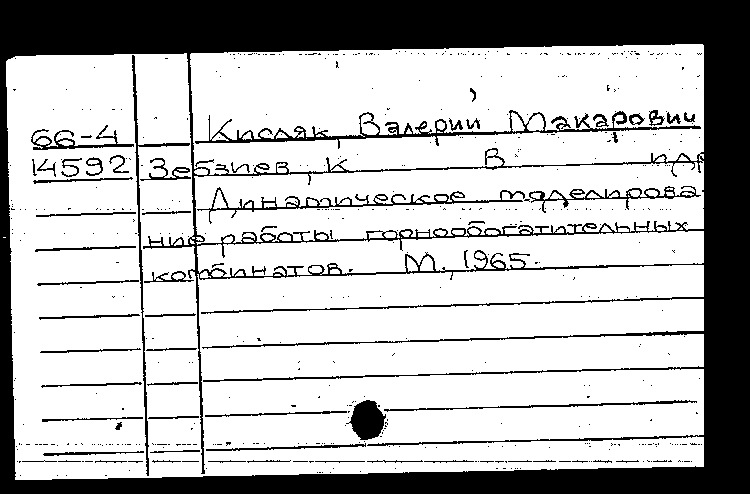 66-4 Кисляк, Валерий Макарович
14592 Зебзиев, К В и др
Динамическое моделирова-
ние работы горнообогатительных
комбинатов. М., 1965.